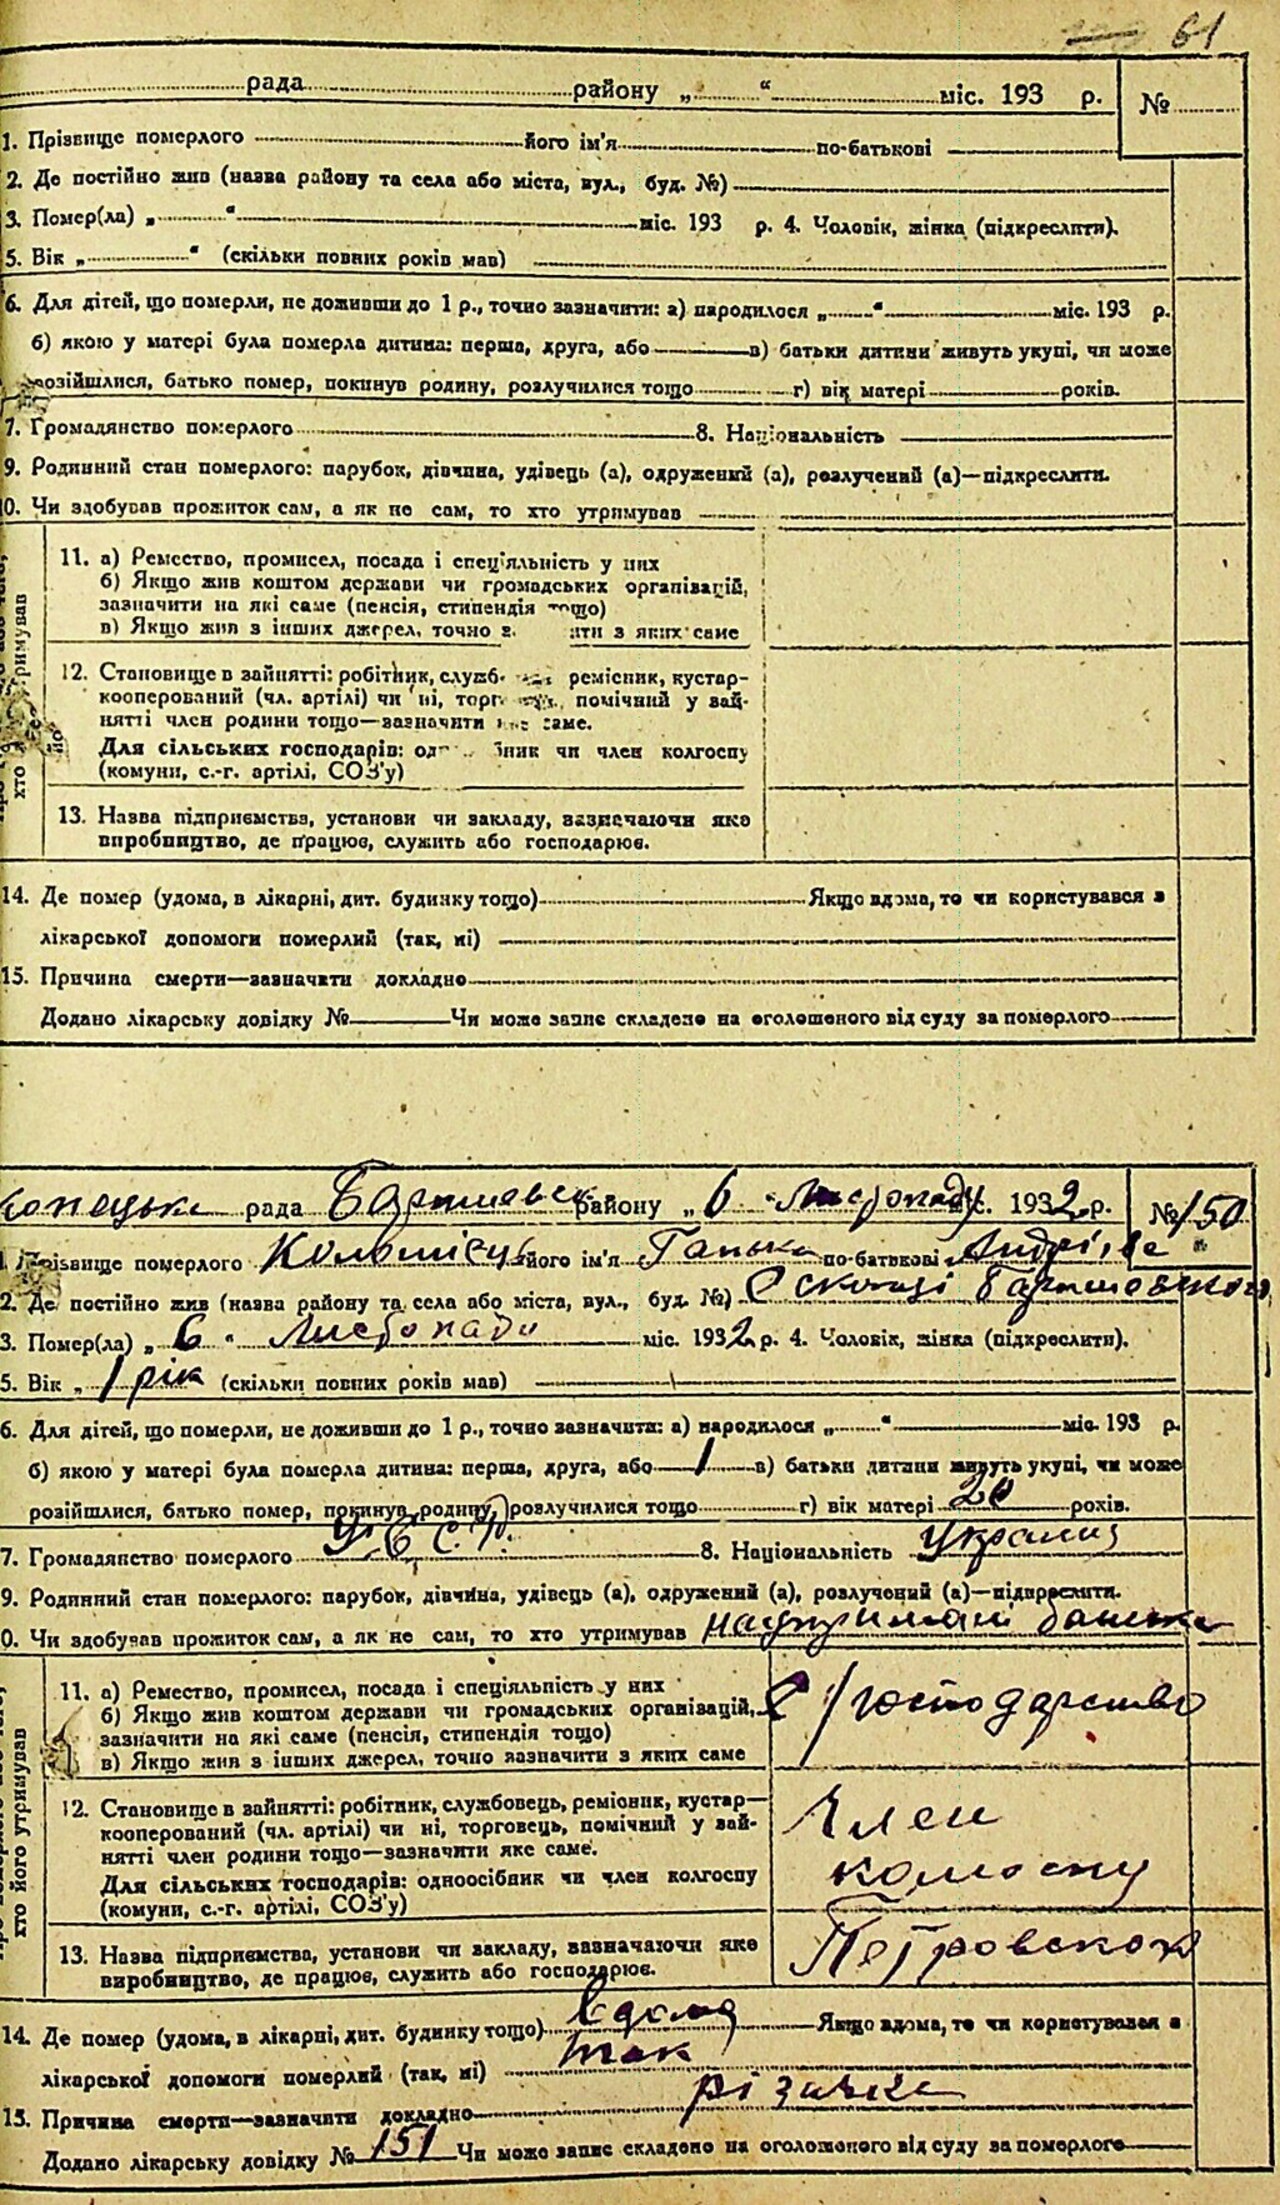 61
рада району „ “ міс. 193 р. №
1. Прізвище померлого його ім'я по-батькові
2. Де постійно жив (назва району та села або міста, вул., буд. №)
3. Помер(ла) „ “ міс. 193 р. 4. Чоловік, жінка (підкреслити).
5. Вік „ “ (скільки повних років мав)
6. Для дітей, що померли, не доживши до 1 р., точно зазначити: а) народилося „ “ міс. 193 р.
б) якою у матері була померла дитина: перша, друга, або в) батьки дитини живуть укупі, чи може
розійшлися, батько помер, покинув родину, розлучилися тощо г) вік матері років.
7. Громадянство померлого 8. Національність
9. Родинний стан померлого: парубок, дівчина, удівець (а), одружений (а), розлучений (а)—підкреслити.
0. Чи здобував прожиток сам, а як не сам, то хто утримував
11. а) Ремество, промисел, посада і спеціяльність у них
б) Якщо жив коштом держави чи громадських організацій,
зазначити на які саме (пенсія, стипендія тощо)
в) Якщо жив з інших джерел, точно з ити з яких саме
12. Становище в зайнятті: робітник, служб ремісник, кустар-
кооперований (чл. артілі) чи ні, торг помічний у зай-
нятті член родини тощо—зазначити яке саме.
Для сільських господарів: од бник чи член колгоспу
(комуни, с.-г. артілі, СОЗ'у)
хто утримував
13. Назва підприємства, установи чи закладу, зазначаючи яке
виробництво, де працює, служить або господарює.
14. Де помер (удома, в лікарні, дит. будинку тощо) Якщо вдома, то чи користувався з
лікарської допомоги померлий (так, ні)
15. Причина смерти—зазначити докладно
Додано лікарську довідку № Чи може запис складено на оголошеного від суду за померлого
копецька рада Баришевськ району „ 6 “ Листопаду міс. 1932 р. № 150
1. Прізвище померлого Коломієць його ім'я Ганька по-батькові Андріїва
2. Де постійно жив (назва району та села або міста, вул., буд. №) С Скопці Баришевського
3. Помер(ла) „ 6 “ Листопада міс. 1932 р. 4. Чоловік, жінка (підкреслити).
5. Вік „ 1 рік (скільки повних років мав)
6. Для дітей, що померли, не доживши до 1 р., точно зазначити: а) народилося „ “ міс. 193 р.
б) якою у матері була померла дитина: перша, друга, або 1 в) батьки дитини живуть укупі, чи може
розійшлися, батько помер, покинув родину, розлучилися тощо г) вік матері 20 років.
7. Громадянство померлого 8. Національність Україниц
9. Родинний стан померлого: парубок, дівчина, удівець (а), одружений (а), розлучений (а)—підкреслити.
0. Чи здобував прожиток сам, а як не сам, то хто утримував на утриман батька
11. а) Ремество, промисел, посада і спеціяльність у них
б) Якщо жив коштом держави чи громадських організацій,
зазначити на які саме (пенсія, стипендія тощо)
в) Якщо жив з інших джерел, точно зазначити з яких саме
С/господарство
12. Становище в зайнятті: робітник, службовець, ремісник, кустар—
кооперований (чл. артілі) чи ні, торговець, помічний у зай-
нятті член родини тощо—зазначити яке саме.
Для сільських господарів: одноосібник чи член колгоспу
(комуни, с.-г. артілі, СОЗ'у)
Член
колгоспу
хто його утримував
13. Назва підприємства, установи чи закладу, зазначаючи яке
виробництво, де працює, служить або господарює.
Петровского
14. Де помер (удома, в лікарні, дит. будинку тощо) вдома Якщо вдома, то чи користувався з
лікарської допомоги померлий (так, ні) так
15. Причина смерти—зазначити докладно різачка
Додано лікарську довідку № 151 Чи може запис складено на оголошеного від суду за померлого